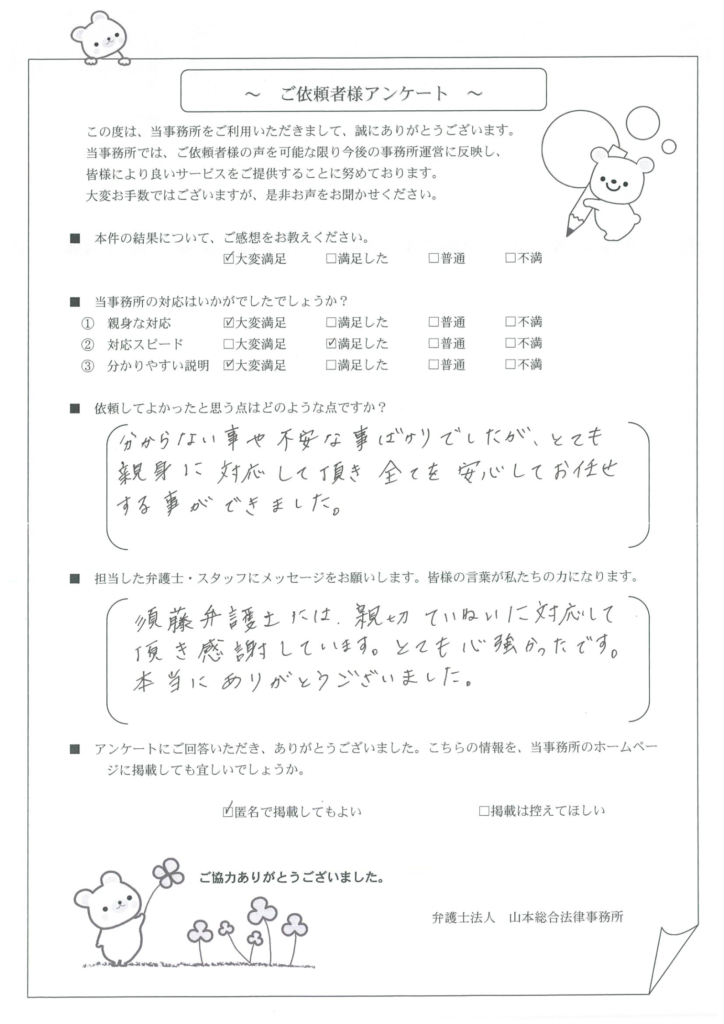 ～　ご依頼者様アンケート　～
この度は、当事務所をご利用いただきまして、誠にありがとうございます。
当事務所では、ご依頼者様の声を可能な限り今後の事務所運営に反映し、
皆様により良いサービスをご提供することに努めております。
大変お手数ではございますが、是非お声をお聞かせください。
■　本件の結果について、ご感想をお教えください。
☑大変満足　□満足した　□普通　□不満
■　当事務所の対応はいかがでしたでしょうか？
①　親身な対応　☑大変満足　□満足した　□普通　□不満
②　対応スピード　□大変満足　☑満足した　□普通　□不満
③　分かりやすい説明　☑大変満足　□満足した　□普通　□不満
■　依頼してよかったと思う点はどのような点ですか？
分からない事や不安な事ばかりでしたが、とても
親身に対応して頂き全てを安心してお任せ
する事ができました。
■　担当した弁護士・スタッフにメッセージをお願いします。皆様の言葉が私たちの力になります。
須藤弁護士には、親切ていねいに対応して
頂き感謝しています。とても心強かったです。
本当にありがとうございました。
■　アンケートにご回答いただき、ありがとうございました。こちらの情報を、当事務所のホームペー
ジに掲載しても宜しいでしょうか。
☑匿名で掲載してもよい　□掲載は控えてほしい
ご協力ありがとうございました。
弁護士法人　山本総合法律事務所